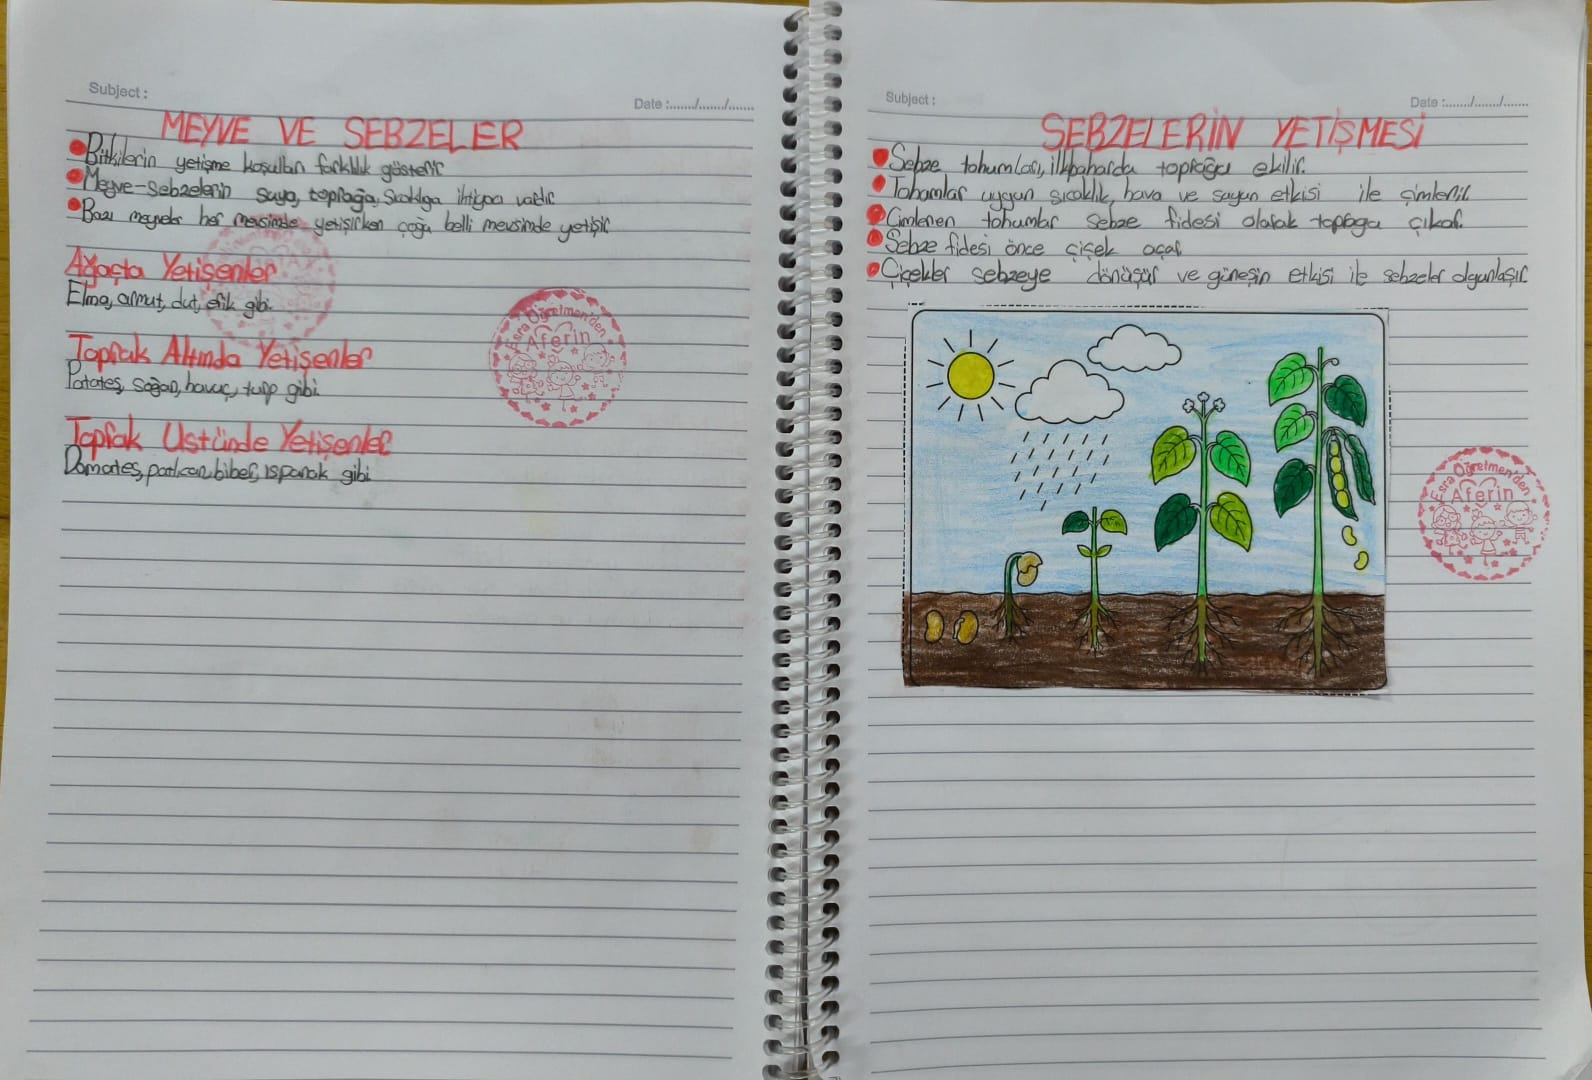 Subject :
Date :....../....../......
MEYVE VE SEBZELER
Bitkilerin yetişme koşulları farklılık gösterir
Meyve-Sebzelerin suya, toprağa, sıcaklığa ihtiyacı vardır
Bazı meyveler her mevsimde yetişirken çoğu belli mevsimde yetişir
Ağaçta Yetişenler
Elma, armut, dut, erik gibi.
Toprak Altında Yetişenler
Patates, soğan, havuç, turp gibi.
Toprak Üstünde Yetişenler
Domates, patlıcan, biber, ıspanak gibi
Esra Öğretmen'den
Aferin
Subject :
Date :....../....../......
SEBZELERİN YETİŞMESİ
Sebze tohumları, ilkbaharda toprağa ekilir.
Tohumlar uygun sıcaklık, hava ve suyun etkisi ile çimlenir.
Çimlenen tohumlar sebze fidesi olarak toprağa çıkar.
Sebze fidesi önce çiçek açar
Çiçekler sebzeye dönüşür ve güneşin etkisi ile sebzeler olgunlaşır.
Esra Öğretmen'den
Aferin